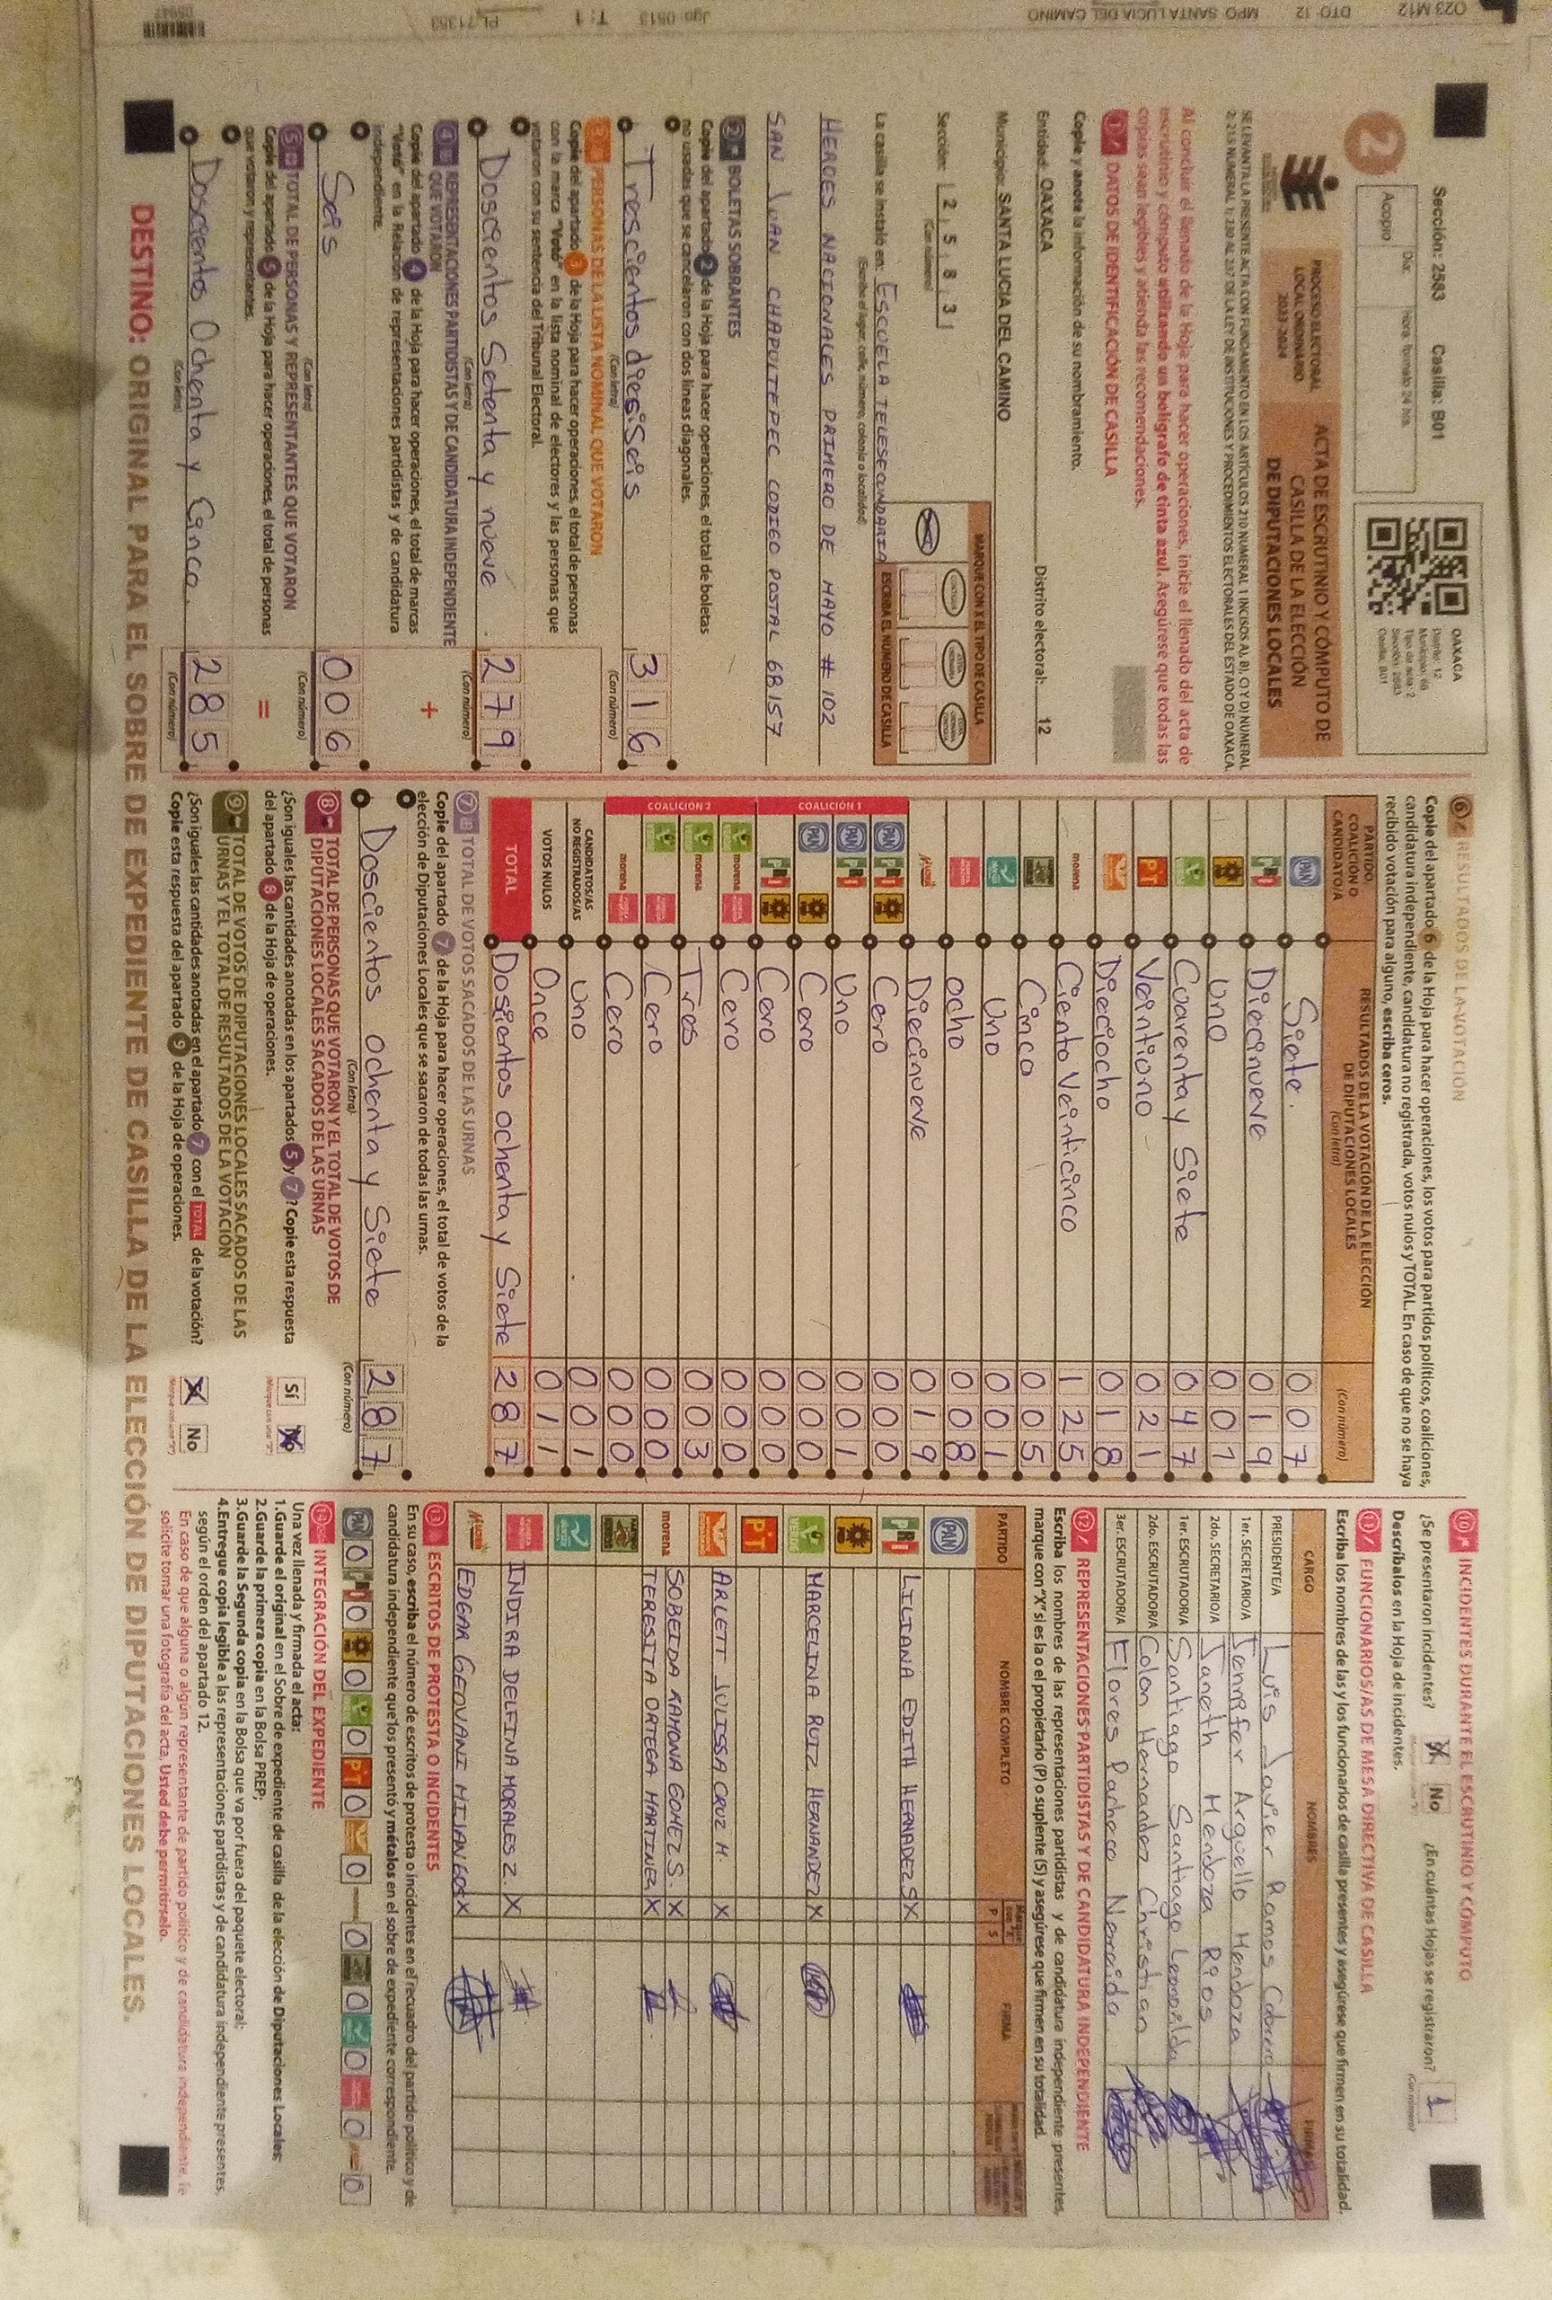 O23 M12 DTO: 12 MPO: SANTA LUCIA DEL CAMINO Jgo: 0513 T: 1 PL 71353
Sección: 2583 Casilla: B01
2
Día: Hora, formato 24 hrs.
Acopio
OAXACA
Distrito: 12
Tipo de acta: 2
Sección: 2583
Casilla: B01
PROCESO ELECTORAL
LOCAL ORDINARIO
2023-2024
ACTA DE ESCRUTINIO Y CÓMPUTO DE
CASILLA DE LA ELECCIÓN
DE DIPUTACIONES LOCALES
SE LEVANTA LA PRESENTE ACTA CON FUNDAMENTO EN LOS ARTÍCULOS 210 NUMERAL 1 INCISOS A), B), C) Y D) NUMERAL
2; 213 NUMERAL 1; 230 AL 237 DE LA LEY DE INSTITUCIONES Y PROCEDIMIENTOS ELECTORALES DEL ESTADO DE OAXACA.
Al concluir el llenado de la Hoja para hacer operaciones, inicie el llenado del acta de
escrutinio y cómputo utilizando un bolígrafo de tinta azul. Asegúrese que todas las
copias sean legibles y atienda las recomendaciones.
1 DATOS DE IDENTIFICACIÓN DE CASILLA
Copie y anote la información de su nombramiento.
Entidad: OAXACA Distrito electoral: 12
Municipio: SANTA LUCIA DEL CAMINO
Sección: 2 5 8 3
(Con número)
MARQUE CON X EL TIPO DE CASILLA
ESCRIBA EL NÚMERO DE CASILLA
La casilla se instaló en: ESCUELA TELESECUNDARIA
(Escriba el lugar, calle, número, colonia o localidad)
HEROES NACIONALES PRIMERO DE MAYO # 102
SAN JUAN CHAPULTEPEC CODIGO POSTAL 68157
2 BOLETAS SOBRANTES
Copie del apartado 2 de la Hoja para hacer operaciones, el total de boletas
no usadas que se cancelaron con dos líneas diagonales.
Trescientos dieciseis 316
(Con letra) (Con número)
3 PERSONAS DE LA LISTA NOMINAL QUE VOTARON
Copie del apartado 3 de la Hoja para hacer operaciones, el total de personas
con la marca "Votó" en la lista nominal de electores y las personas que
votaron con su sentencia del Tribunal Electoral.
Doscientos Setenta y nueve 279
(Con letra) (Con número)
4 REPRESENTACIONES PARTIDISTAS Y DE CANDIDATURA INDEPENDIENTE
QUE VOTARON
Copie del apartado 4 de la Hoja para hacer operaciones, el total de marcas
"Votó" en la Relación de representaciones partidistas y de candidatura
independiente.
+
Seis 006
(Con letra) (Con número)
5 TOTAL DE PERSONAS Y REPRESENTANTES QUE VOTARON
Copie del apartado 5 de la Hoja para hacer operaciones, el total de personas
que votaron y representantes.
=
Doscientos Ochenta y Cinco. 285
(Con letra) (Con número)
6 RESULTADOS DE LA VOTACIÓN
Copie del apartado 6 de la Hoja para hacer operaciones, los votos para partidos políticos, coaliciones,
candidatura independiente, candidatura no registrada, votos nulos y TOTAL. En caso de que no se haya
recibido votación para alguno, escriba ceros.
PARTIDO, COALICIÓN O CANDIDATO/A
RESULTADOS DE LA VOTACIÓN DE LA ELECCIÓN
DE DIPUTACIONES LOCALES
(Con letra) (Con número)
PAN Siete. 007
PRI Diecinueve 019
PRD Uno 001
VERDE Cuarenta y Siete 047
PT Veintiuno 021
Dieciocho 018
morena Ciento Veinticinco 125
Cinco 005
Uno 001
ocho 008
Mujer Diecinueve 019
COALICIÓN 1
PAN PRI PRD Cero 000
PAN PRI Uno 001
PAN PRD Cero 000
PRI PRD Cero 000
COALICIÓN 2
VERDE morena Cero 000
VERDE morena Tres 003
VERDE Cero 000
morena Cero 000
CANDIDATOS/AS NO REGISTRADOS/AS Uno 001
VOTOS NULOS Once 011
TOTAL Dosientos ochenta y Siete 287
7 TOTAL DE VOTOS SACADOS DE LAS URNAS
Copie del apartado 7 de la Hoja para hacer operaciones, el total de votos de la
elección de Diputaciones Locales que se sacaron de todas las urnas.
Doscientos ochenta y Siete 287
(Con letra) (Con número)
8 TOTAL DE PERSONAS QUE VOTARON Y EL TOTAL DE VOTOS DE
DIPUTACIONES LOCALES SACADOS DE LAS URNAS
¿Son iguales las cantidades anotadas en los apartados 5 y 7? Copie esta respuesta
del apartado 8 de la Hoja de operaciones.
Sí No
9 TOTAL DE VOTOS DE DIPUTACIONES LOCALES SACADOS DE LAS
URNAS Y EL TOTAL DE RESULTADOS DE LA VOTACIÓN
¿Son iguales las cantidades anotadas en el apartado 7 con el TOTAL de la votación?
Copie esta respuesta del apartado 9 de la Hoja de operaciones.
Sí No
10 INCIDENTES DURANTE EL ESCRUTINIO Y CÓMPUTO
¿Se presentaron incidentes? Sí No ¿En cuántas Hojas se registraron? 1
Descríbalos en la Hoja de incidentes.
11 FUNCIONARIOS/AS DE MESA DIRECTIVA DE CASILLA
Escriba los nombres de las y los funcionarios de casilla presentes y asegúrese que firmen en su totalidad.
CARGO NOMBRES FIRMAS
PRESIDENTE/A Luis Javier Ramos Cabrera
1er. SECRETARIO/A Jennifer Arguello Mendoza
2do. SECRETARIO/A Janeth Mendoza Rios
1er. ESCRUTADOR/A Santiago Santiago Leonelda
2do. ESCRUTADOR/A Colon Hernandez Christian
3er. ESCRUTADOR/A Flores Pacheco Nereida
12 REPRESENTACIONES PARTIDISTAS Y DE CANDIDATURA INDEPENDIENTE
Escriba los nombres de las representaciones partidistas y de candidatura independiente presentes,
marque con "X" si es la o el propietario (P) o suplente (S) y asegúrese que firmen en su totalidad.
PARTIDO NOMBRE COMPLETO P S FIRMA
PAN
PRI LILIANA EDITH HERNADEZ S X
PRD
VERDE MARCELINA RUIZ HERNANDEZ X
PT
ARLETT JULISSA CRUZ H. X
morena SOBEIDA RAMONA GOMEZ S. X
TERESITA ORTEGA MARTINEZ X
INDIRA DELFINA MORALES Z. X
Mujer EDGAR GEOVANI MIJANGOS X
13 ESCRITOS DE PROTESTA O INCIDENTES
En su caso, escriba el número de escritos de protesta o incidentes en el recuadro del partido político y de
candidatura independiente que los presentó y métalos en el sobre de expediente correspondiente.
PAN 0 PRI 0 PRD 0 VERDE 0 PT 0 0 morena 0 0 0 0 0
14 INTEGRACIÓN DEL EXPEDIENTE
Una vez llenada y firmada el acta:
1.Guarde el original en el Sobre de expediente de casilla de la elección de Diputaciones Locales;
2.Guarde la primera copia en la Bolsa PREP;
3.Guarde la Segunda copia en la Bolsa que va por fuera del paquete electoral;
4.Entregue copia legible a las representaciones partidistas y de candidatura independiente presentes,
según el orden del apartado 12.
En caso de que alguna o algún representante de partido político y de candidatura independiente, le
solicite tomar una fotografía del acta, Usted debe permitírselo.
DESTINO: ORIGINAL PARA EL SOBRE DE EXPEDIENTE DE CASILLA DE LA ELECCIÓN DE DIPUTACIONES LOCALES.